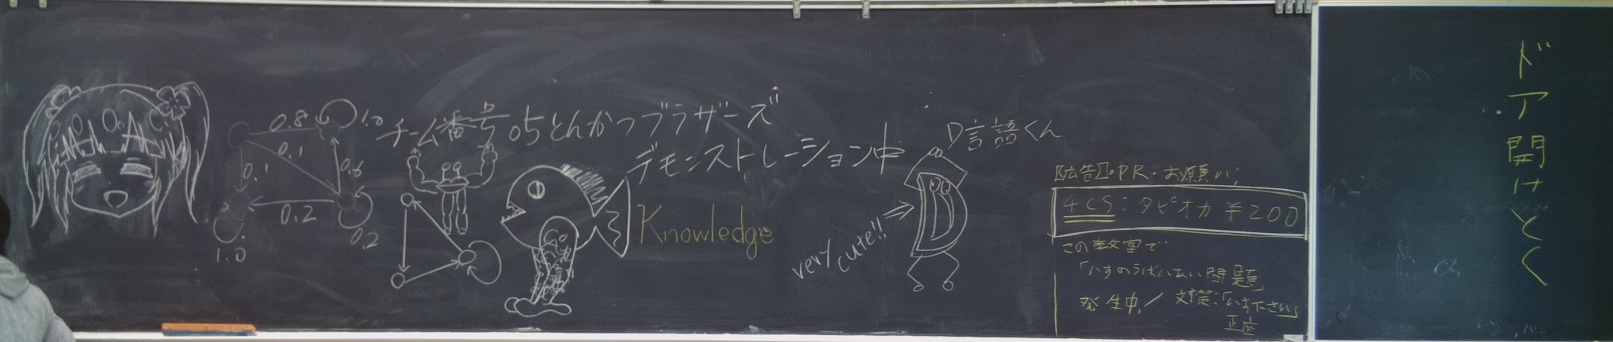 0.8
1.0
0.1
0.1
0.6
0.2
0.2
1.0
チーム番号05とんかつブラザーズ
デモンストレーション中
Knowledge
D言語くん
very cute!!
【広告】・PR・お願い;
4CS:タピオカ ¥200
この教室で
「いすのうばいあい問題」
発生中! 対策:「いす下さい」
正座
ドア開けとく